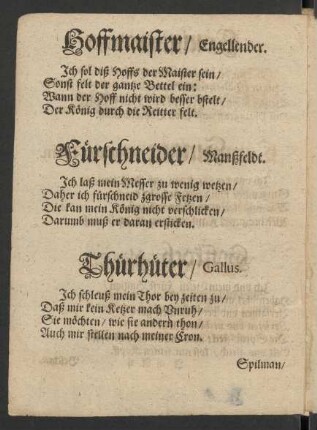 Hoffmaister / Engellender.
Ich sol diß Hoffs der Maister sein /
Sonst felt der gantze Bettel ein:
Wann der Hoff nicht wird besser bstelt /
Der König durch die Reitter felt.
Fürschneider / Manßfeldt.
Ich laß mein Messer zu wenig wetzen /
Daher ich fürschneid zgrosse Fetzen /
Die kan mein König nicht verschlicken /
Darumb muß er daran ersticken.
Thürhüter / Gallus.
Ich schleuß mein Thor bey zeiten zu /
Daß mir kein Ketzer mach Vnruh /
Sie möchten / wie sie andern thon /
Auch mir stellen nach meiner Cron.
Spilman /